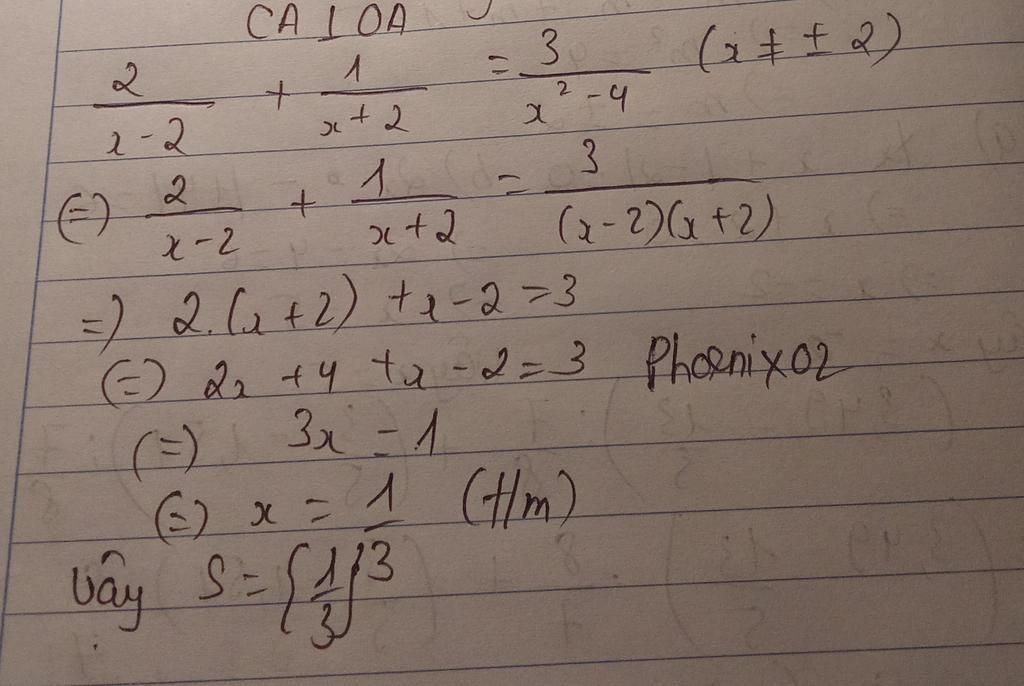 CA IOA
2/(x-2) + 1/(x+2) = 3/(x²-4) (x ≠ ± 2)
(=) 2/(x-2) + 1/(x+2) = 3/((x-2)(x+2))
=) 2.(x+2) +x-2=3
(=) 2x +4 +x-2=3 Phoenix02
(=) 3x = 1
(=) x = 1/3 (t/m)
Vậy S = {1/3}